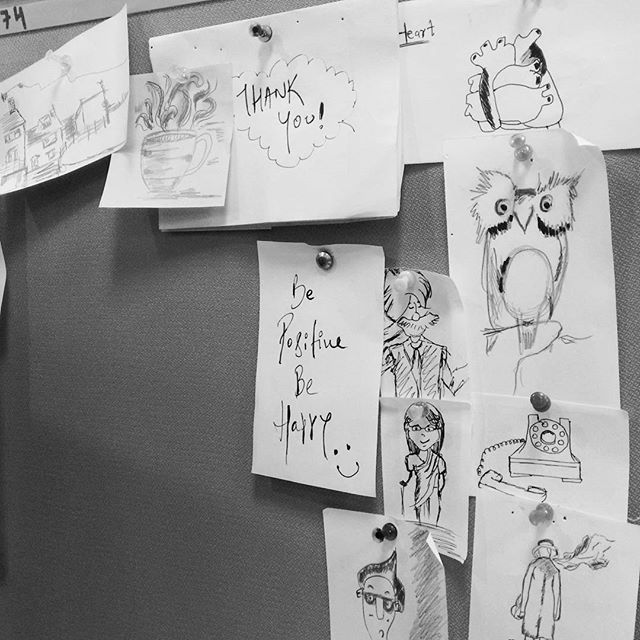 74
THANK
YOU!
Heart
Be
Positive
Be
Happy